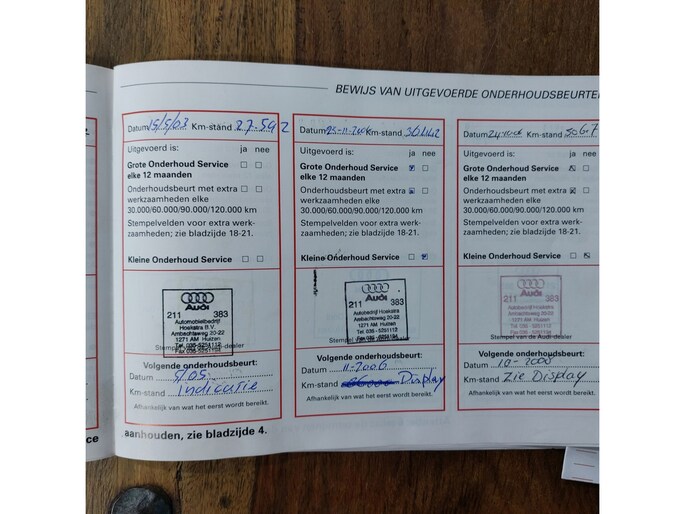 BEWIJS VAN UITGEVOERDE ONDERHOUDSBEURTEN
Datum 15/5/03 Km-stand 27.592
Uitgevoerd is: ja nee
Grote Onderhoud Service
elke 12 maanden
Onderhoudsbeurt met extra
werkzaamheden elke
30.000/60.000/90.000/120.000 km
Stempelvelden voor extra werk-
zaamheden; zie bladzijde 18-21.
Kleine Onderhoud Service
Audi
211 383
Automobielbedrijf
Hoekstra B.V.
Ambachtsweg 20-22
1271 AM Huizen
Tel. 035-5251112
Fax 035-5255110
Stempel van de Audi-dealer
Volgende onderhoudsbeurt:
Datum 5/05
Km-stand indicatie
Afhankelijk van wat het eerst wordt bereikt.
Datum Km-stand
Uitgevoerd is: ja nee
Grote Onderhoud Service
elke 12 maanden
Onderhoudsbeurt met extra
werkzaamheden elke
30.000/60.000/90.000/120.000 km
Stempelvelden voor extra werk-
zaamheden; zie bladzijde 18-21.
Kleine Onderhoud Service
Audi
211 383
Hoekstra B.V.
Ambachtsweg 20-22
1271 AM Huizen
Stempel van de Audi-dealer
Volgende onderhoudsbeurt:
Datum 11-2006
Km-stand Display
Afhankelijk van wat het eerst wordt bereikt.
Datum Km-stand
Uitgevoerd is: ja nee
Grote Onderhoud Service
elke 12 maanden
Onderhoudsbeurt met extra
werkzaamheden elke
30.000/60.000/90.000/120.000 km
Stempelvelden voor extra werk-
zaamheden; zie bladzijde 18-21.
Kleine Onderhoud Service
Audi
211 383
Hoekstra B.V.
Ambachtsweg 20-22
1271 AM Huizen
Stempel van de Audi-dealer
Volgende onderhoudsbeurt:
Datum 10-2008
Km-stand Zie Display
Afhankelijk van wat het eerst wordt bereikt.
aanhouden, zie bladzijde 4.